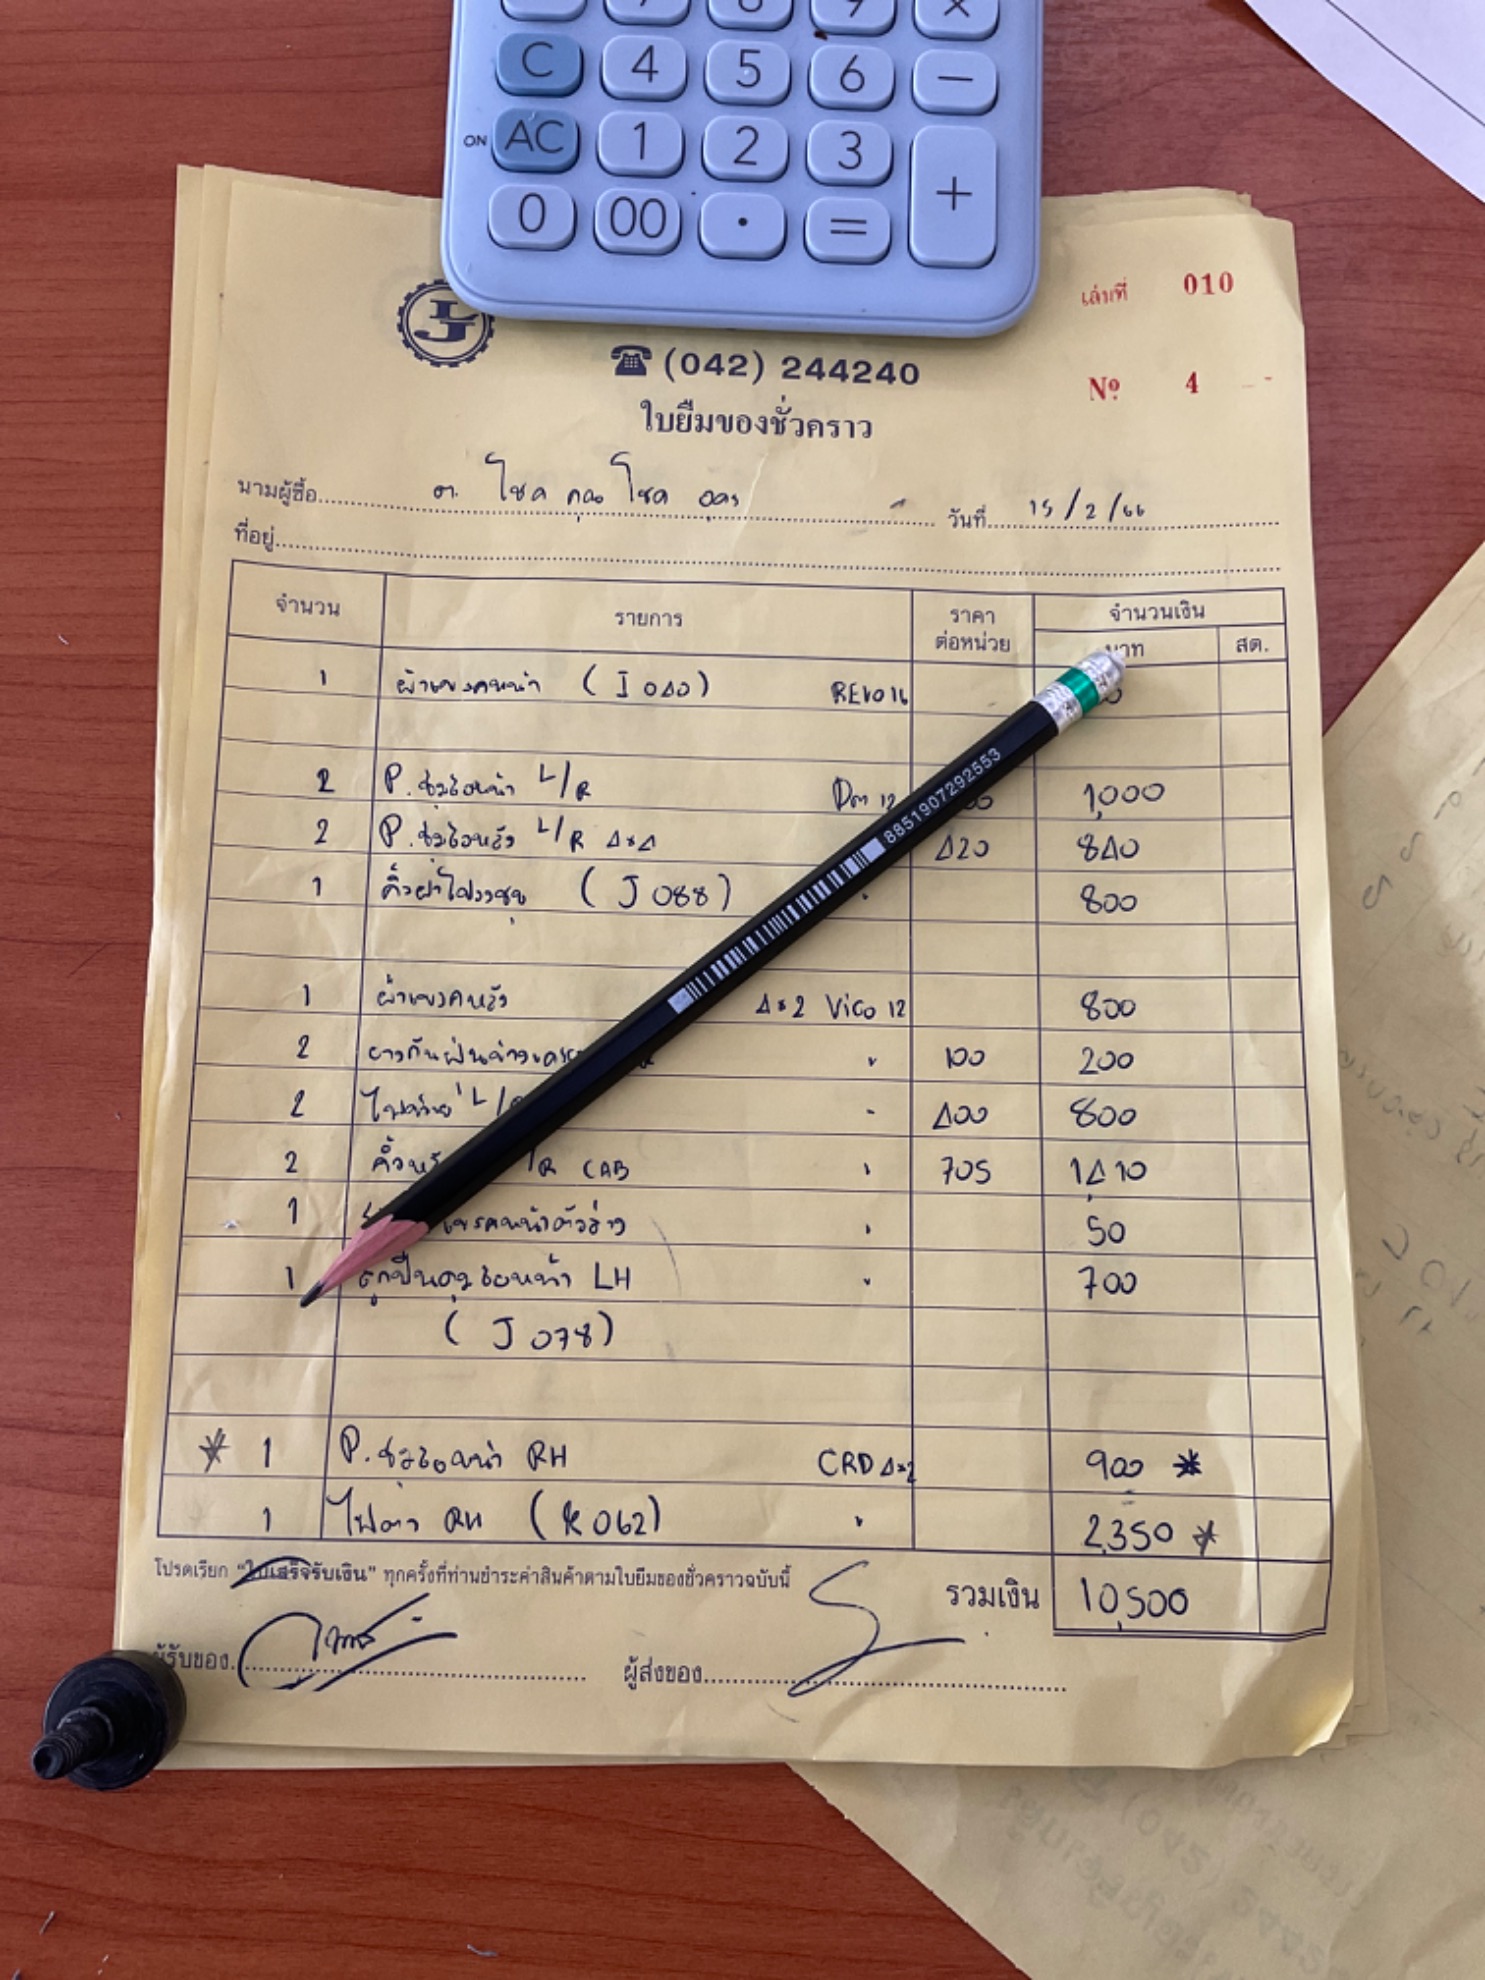 7 8 9 ×
C 4 5 6 −
ON AC 1 2 3 +
0 00 . =
เล่มที่ 010
☎ (042) 244240
Nº 4
ใบยืมของชั่วคราว
นามผู้ซื้อ โชค คูณ โชค อุดร วันที่ 15/2/66
ที่อยู่
จำนวน รายการ ราคาต่อหน่วย จำนวนเงิน
บาท สต.
1 ผ้าเบรคหน้า (J 040) REVO 16
2 P. หน้า L/R 12 1,000
2 P. หลัง L/R 4x4 420 840
1 คิ้วฝา (J 088) " 800
8851907292553
1 ผ้าเบรคหลัง 4x2 Vigo 12 800
2 ยางกันฝุ่น " 100 200
2 L/ " 400 800
2 /R CAB " 705 1,410
1 เบรคหน้าตัวล่าง " 50
1 ลูกปืนดุมล้อหน้า LH " 700
(J 078)
* 1 P. หน้า RH CRD 4x2 900 *
1 ไฟตา RH (K 062) " 2,350 *
โปรดเรียก "ใบเสร็จรับเงิน" ทุกครั้งที่ท่านชำระค่าสินค้าตามใบยืมของชั่วคราวฉบับนี้
รวมเงิน 10,500
ผู้รับของ ผู้ส่งของ